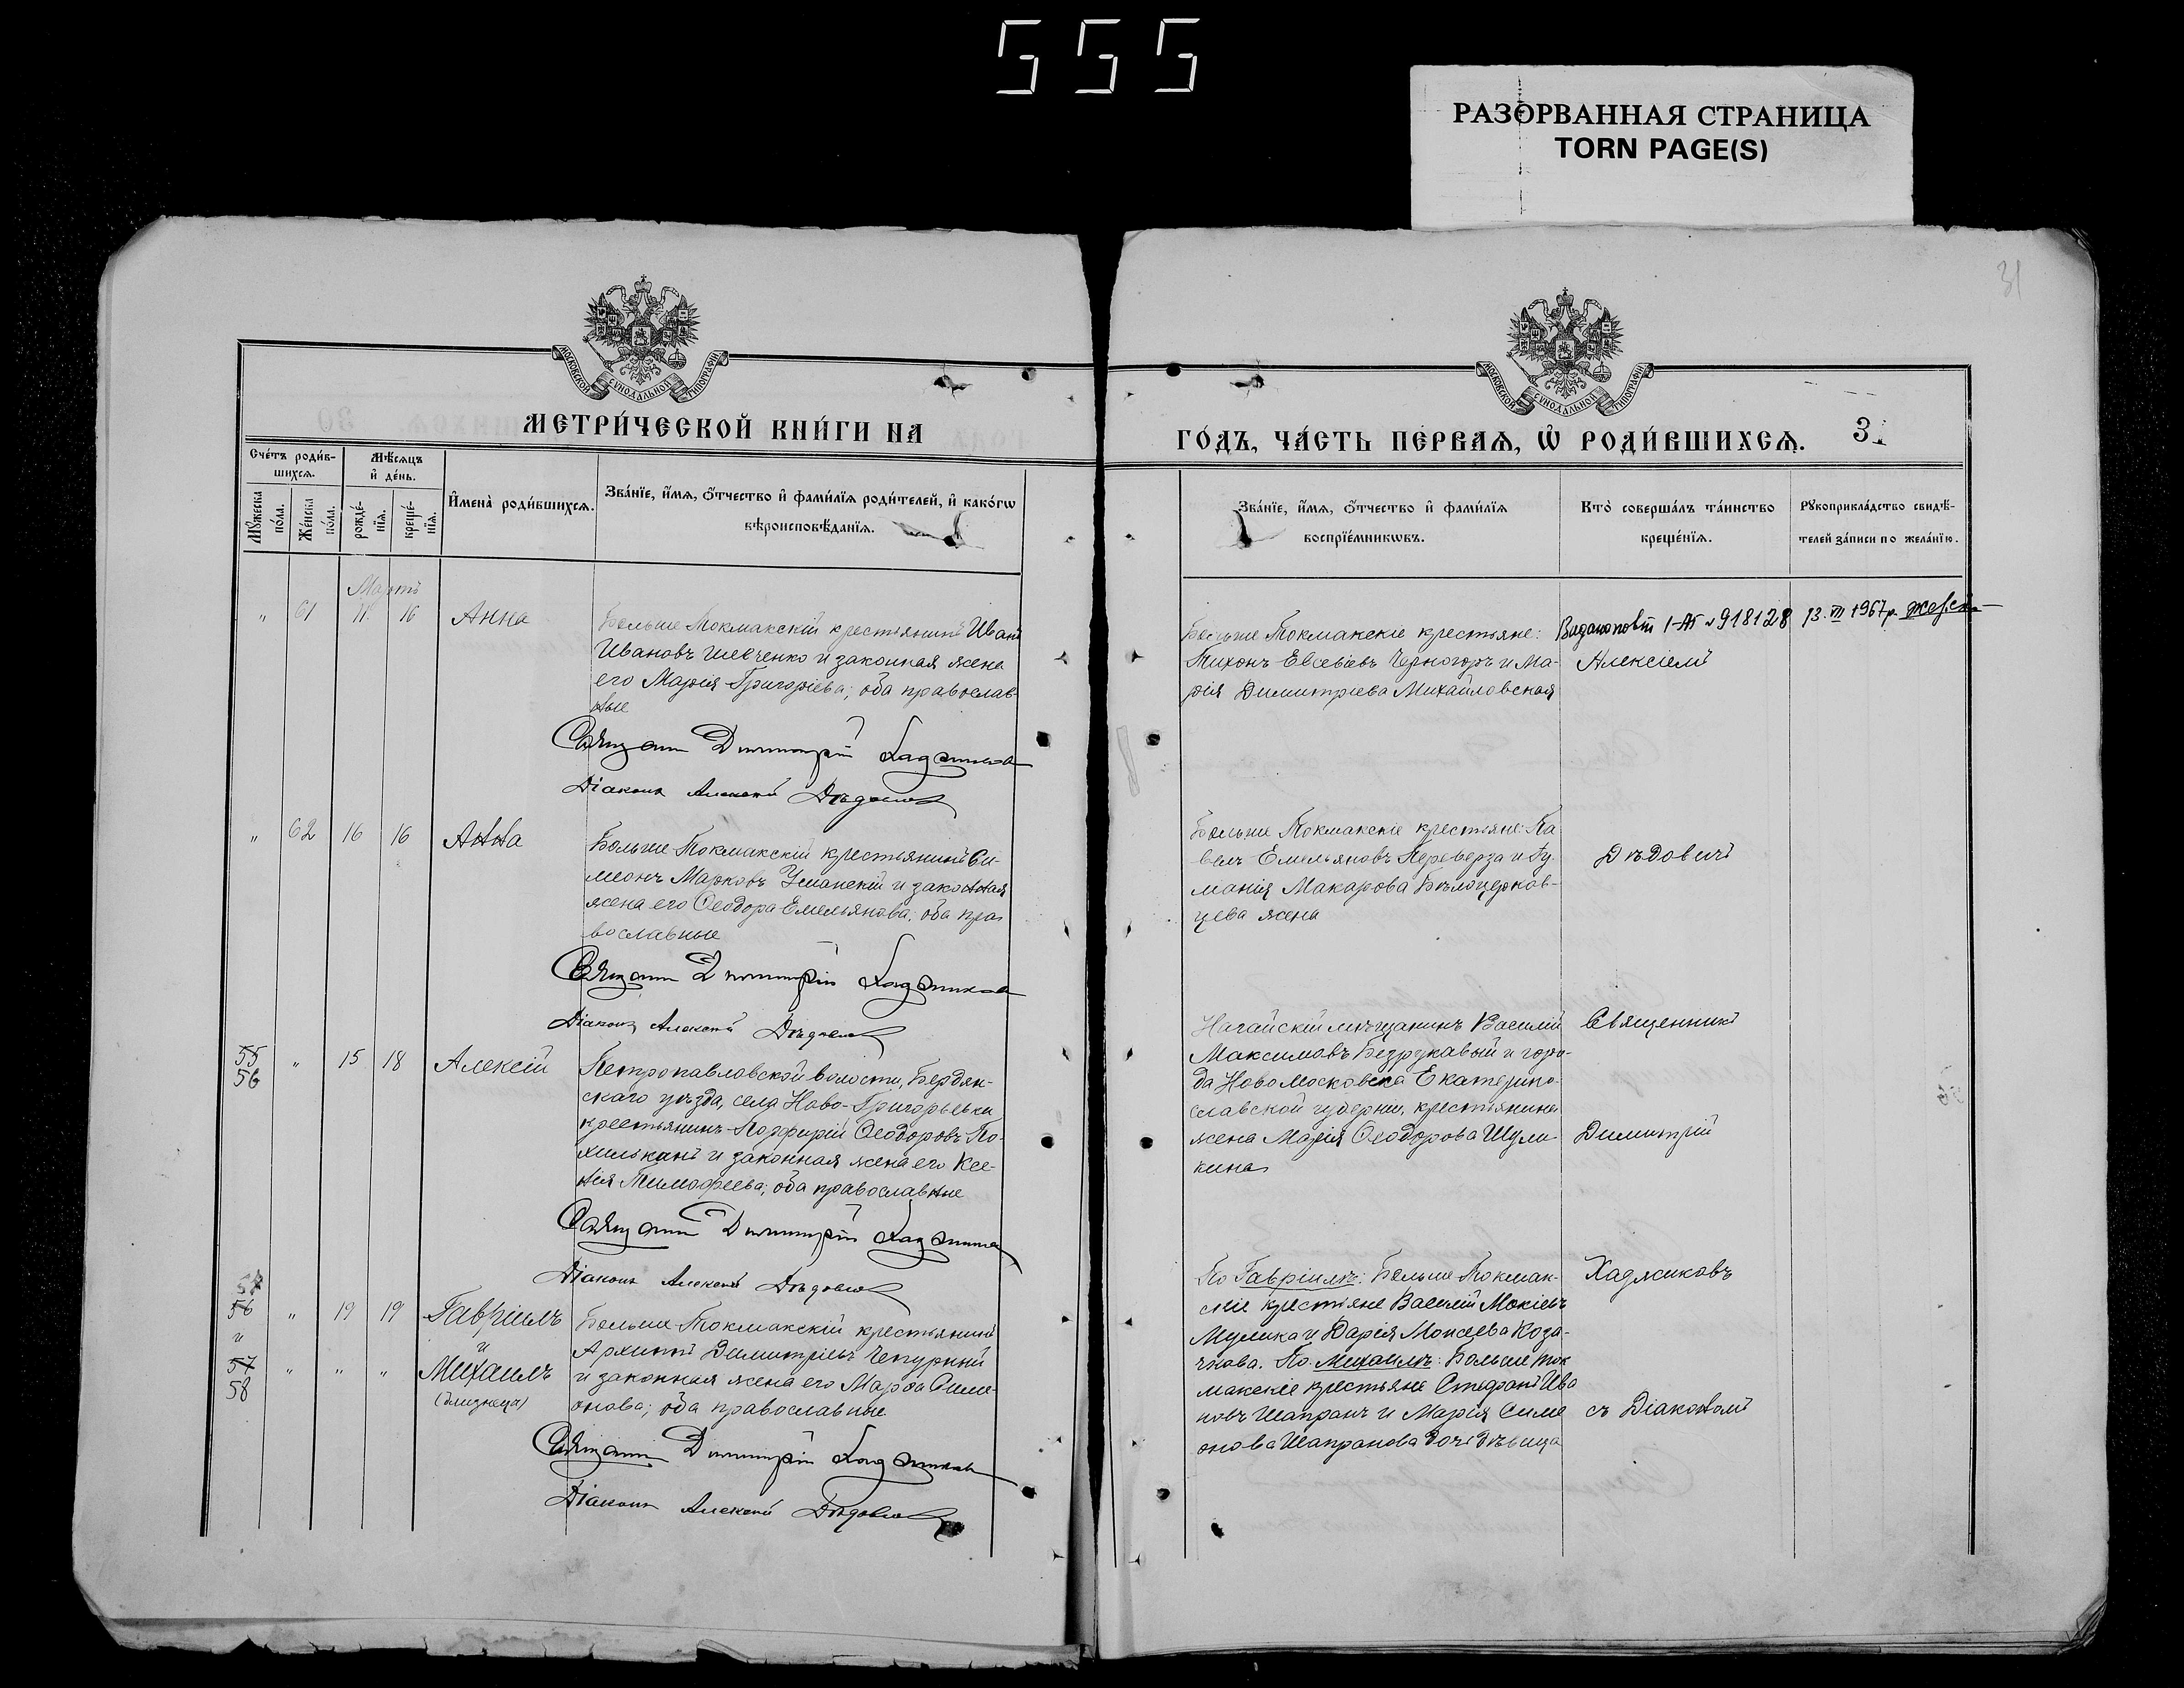 555
РАЗОРВАННАЯ СТРАНИЦА
TORN PAGE(S)
31
МОСКОВСКОЙ СѴНОДАЛЬНОЙ ТИПОГРАФІИ
МОСКОВСКОЙ СѴНОДАЛЬНОЙ ТИПОГРАФІИ
МЕТРИ́ЧЕСКОЙ КНИ́ГИ НА
ГО́ДЪ, ЧА́СТЬ ПЕ́РВАѦ, Ѡ҆ РОДИ́ВШИХСѦ.
3
Сче́тъ роди́в-
шихсѧ.
Мѣ́сѧцъ
и҆ де́нь.
Мꙋ́жеска
по́ла.
Же́нска
по́ла.
рожде́-
нїѧ.
креще́-
нїѧ.
И҆мена̀ роди́вшихсѧ.
Зва́нїе, и҆́мѧ, о҆́тчество и҆ фами́лїѧ роди́телей, и҆ како́гѡ
вѣроисповѣ́данїѧ.
Зва́нїе, и҆́мѧ, о҆́тчество и҆ фами́лїѧ
воспрїе́мникѡвъ.
Кто̀ соверша́лъ та́инство
креще́нїѧ.
Рꙋкоприкла́дство свидѣ́-
телей за́писи по жела́нїю.
Мартъ
" 61 11. 16 Анна
Больше Токмакскій крестьянинъ Иванъ
Ивановъ Шевченко и законная жена
его Марія Григоріева; оба православ-
ные
Священ Димитрій Хаджиковъ
Діаконъ Алексѣй Дѣдовичъ
Больше Токмакскіе крестьяне:
Тихонъ Евсевіевъ Черногоръ и Ма-
рія Димитріева Михайловская
1-АП № 918128 13.VII 1967р.
Алексіемъ
" 62 16 16 Анна
Больше Токмакскій крестьянинъ Си-
меонъ Марковъ Уманскій и законная
жена его Ѳеодора Емельянова; оба пра-
вославные
Священ Димитрій Хаджиковъ
Діаконъ Алексѣй Дѣдовичъ
Больше Токмакскіе крестьяне: Па-
велъ Емельяновъ Переверза и Гу-
манія Макарова Бѣлоцерков-
цева жена
Дѣдовичъ
55
56 " 15 18 Алексій
Петропавловской волости, Бердян-
скаго уѣзда, села Ново-Григорьевки
крестьянинъ Порфирій Ѳеодоровъ По-
хилькинъ и законная жена его Ксе-
нія Тимофеева; оба православные
Священ Димитрій Хаджиковъ
Діаконъ Алексѣй Дѣдовичъ
Ногайскій мѣщанинъ Василій
Максимовъ Безрукавый и горо-
да Ново Московска Екатерино-
славской губерніи, крестьянина
жена Марія Ѳеодорова Шули-
кина
Священникъ
Димитрій
57
56 " 19 19 Гавріилъ
и и
57 " " " Михаилъ
58 (близнецы)
Больше Токмакскій крестьянинъ
Архипъ Димитріевъ Чепурный
и законная жена его Марѳа Симе-
онова; оба православные
Священ Димитрій Хаджиковъ
Діаконъ Алексѣй Дѣдовичъ
По Гавріилѣ: Больше Токмак-
скіе крестьяне Василій Мокіевъ
Мулика и Дарія Моисеева Коза-
чкова. По Михаилѣ: Больше Ток
макскіе крестьяне Стефанъ Ива
новъ Шапранъ и Марія Симе
онова Шапранова дочь дѣвица
Хаджиковъ
съ Діакономъ